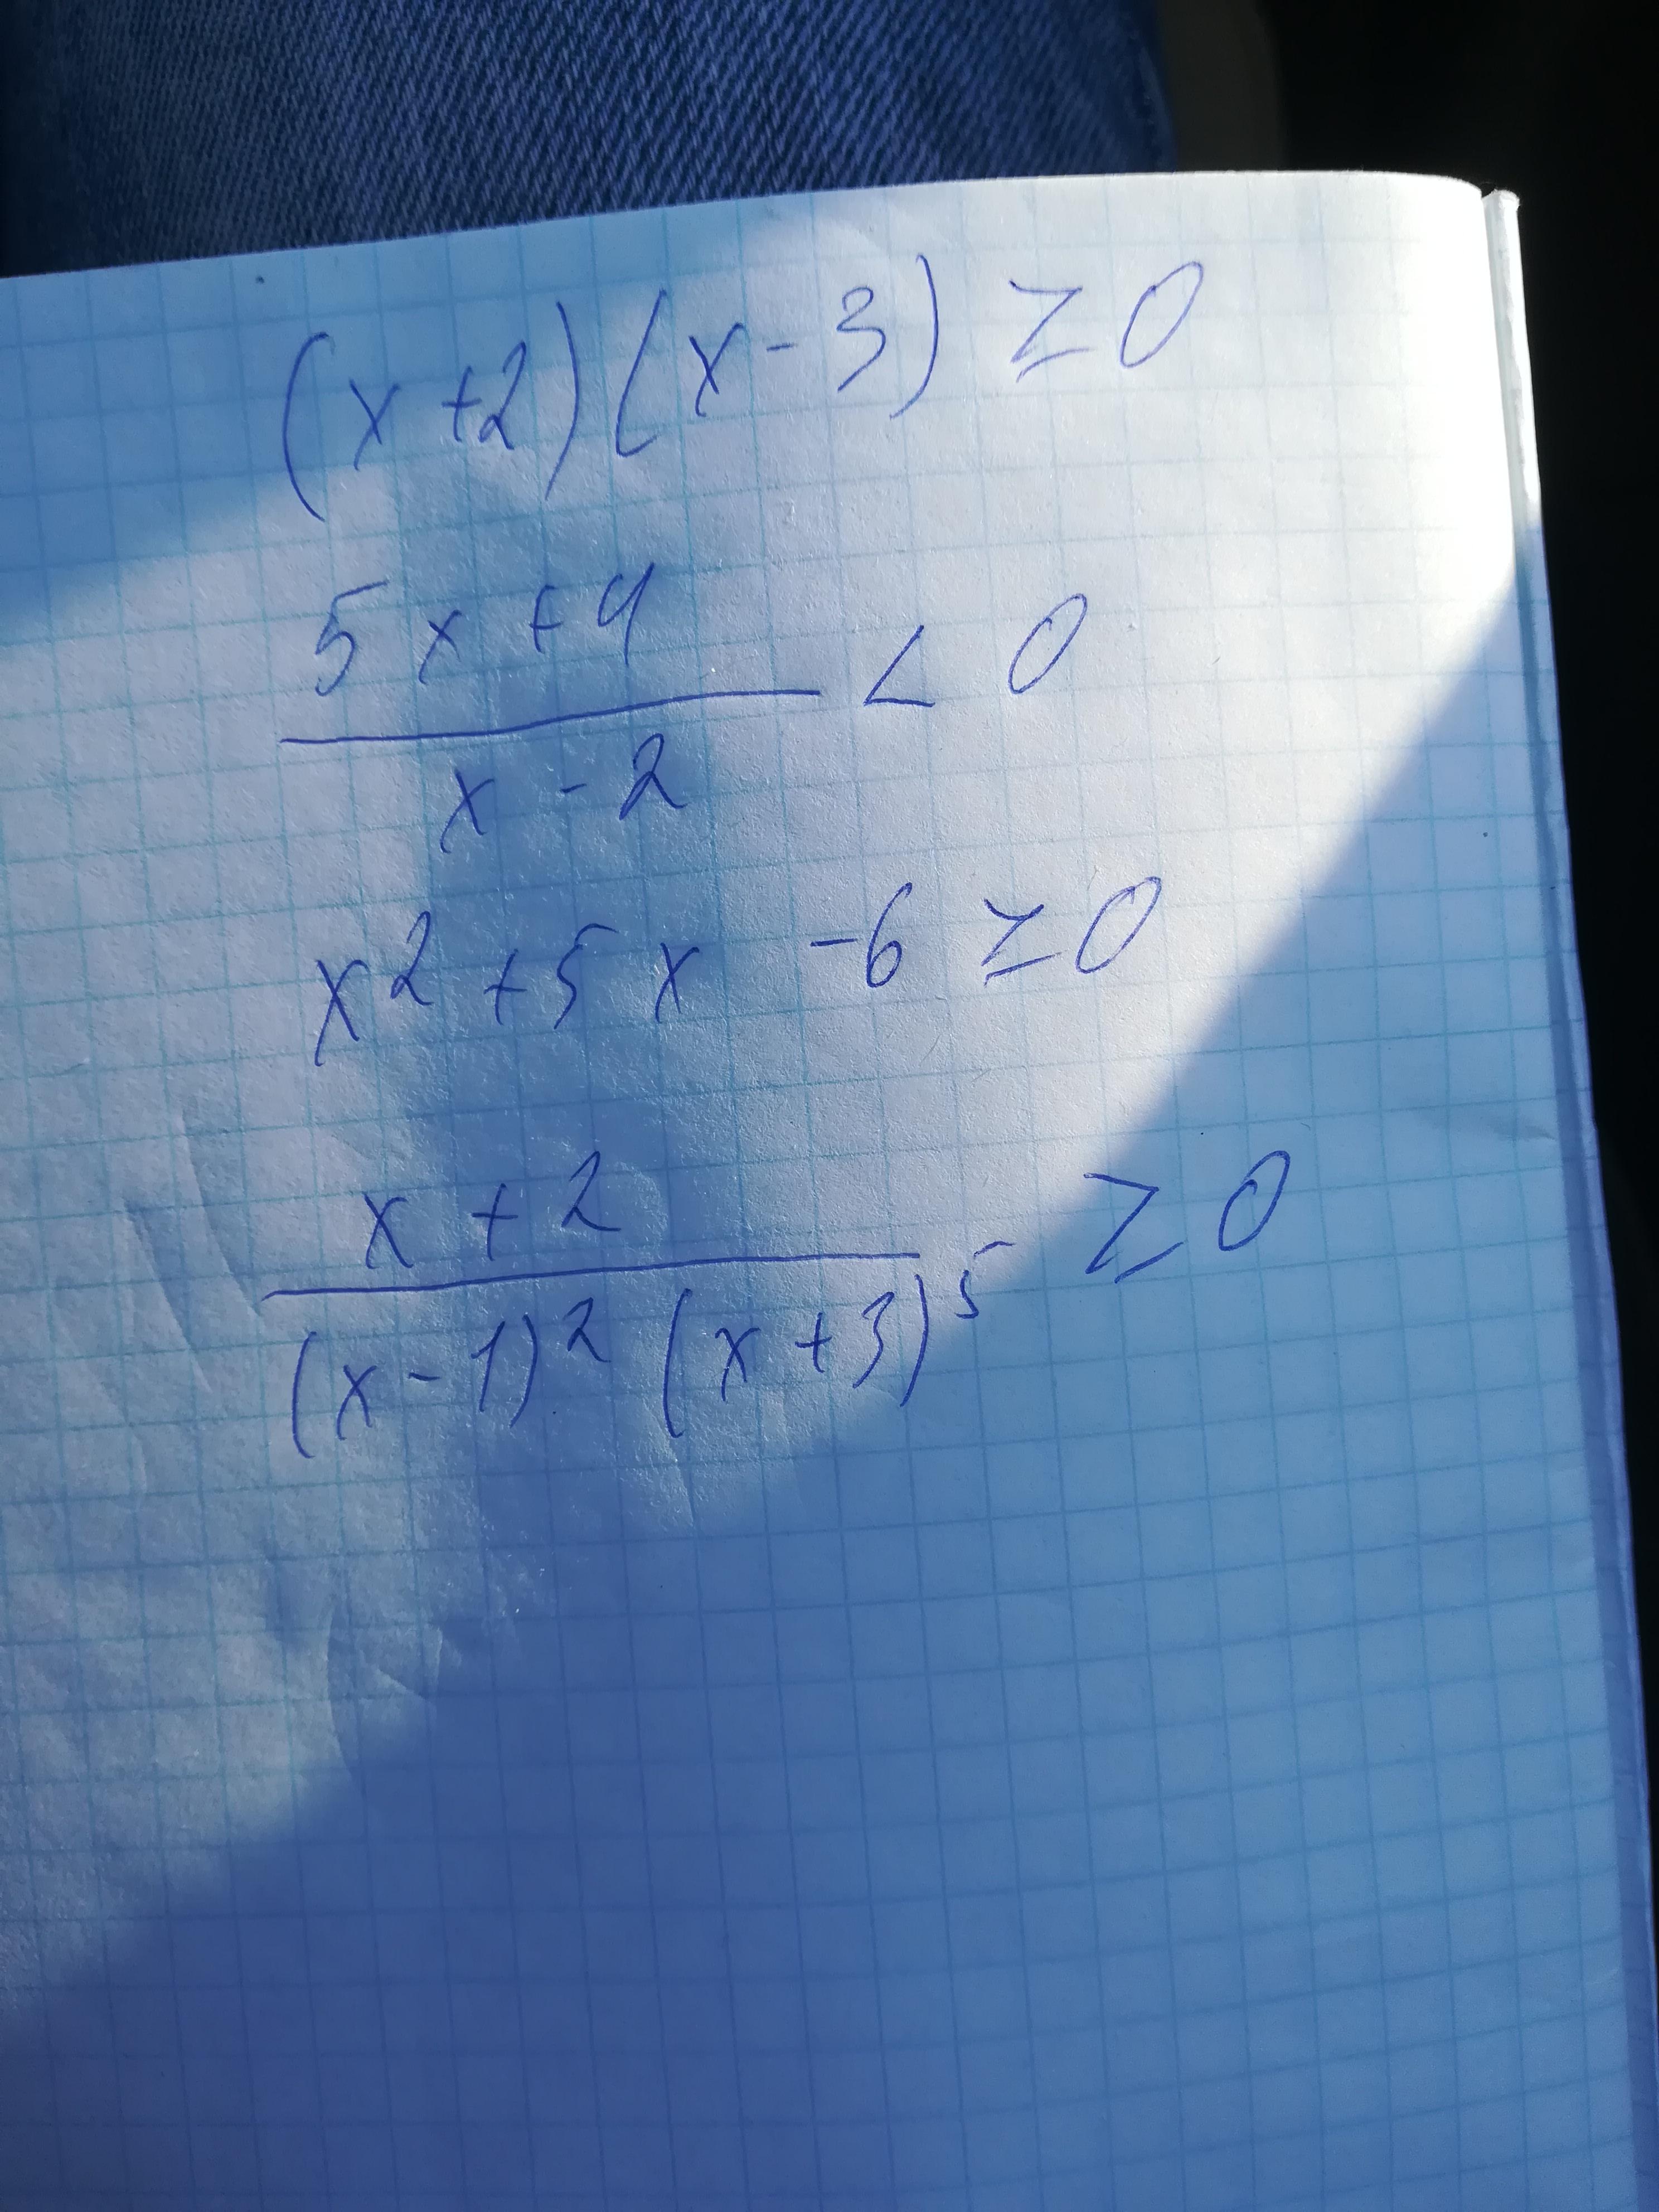 (x+2)(x-3) ≥ 0
5x+4
x-2 < 0
x² + 5x - 6 ≥ 0
x+2
(x-1)² (x+3)⁵ ≥ 0